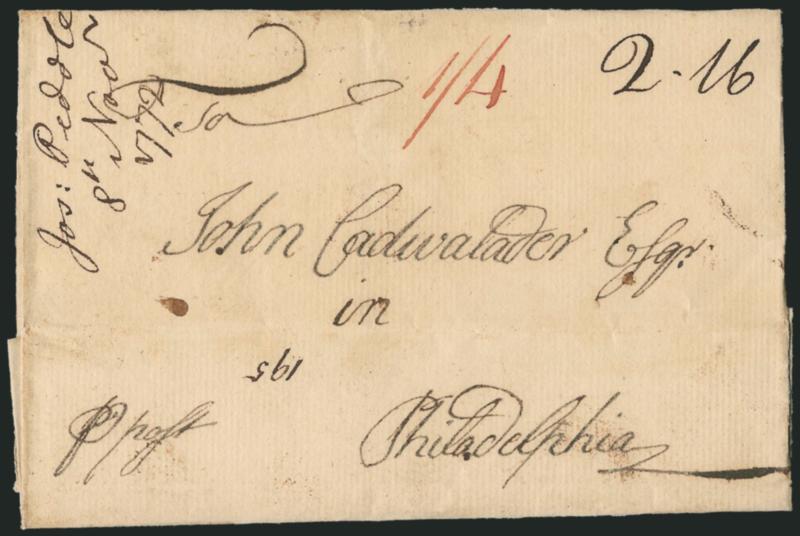 Jos: Peddle
8r Novr
1772
1/4
2-16
To
John Cadwalader Esqr.
in
195
P post
Philadelphia